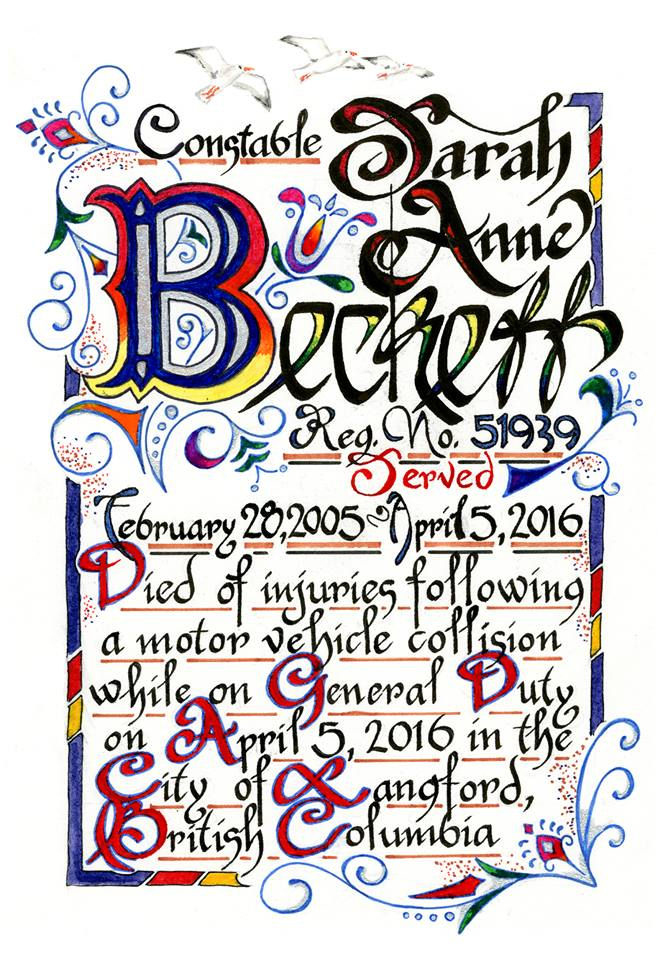 Constable Sarah
Anne
Beckett
Reg. No. 51939
Served
February 28, 2005 ~ April 5, 2016
Died of injuries following
a motor vehicle collision
while on General Duty
on April 5, 2016 in the
City of Langford,
British Columbia